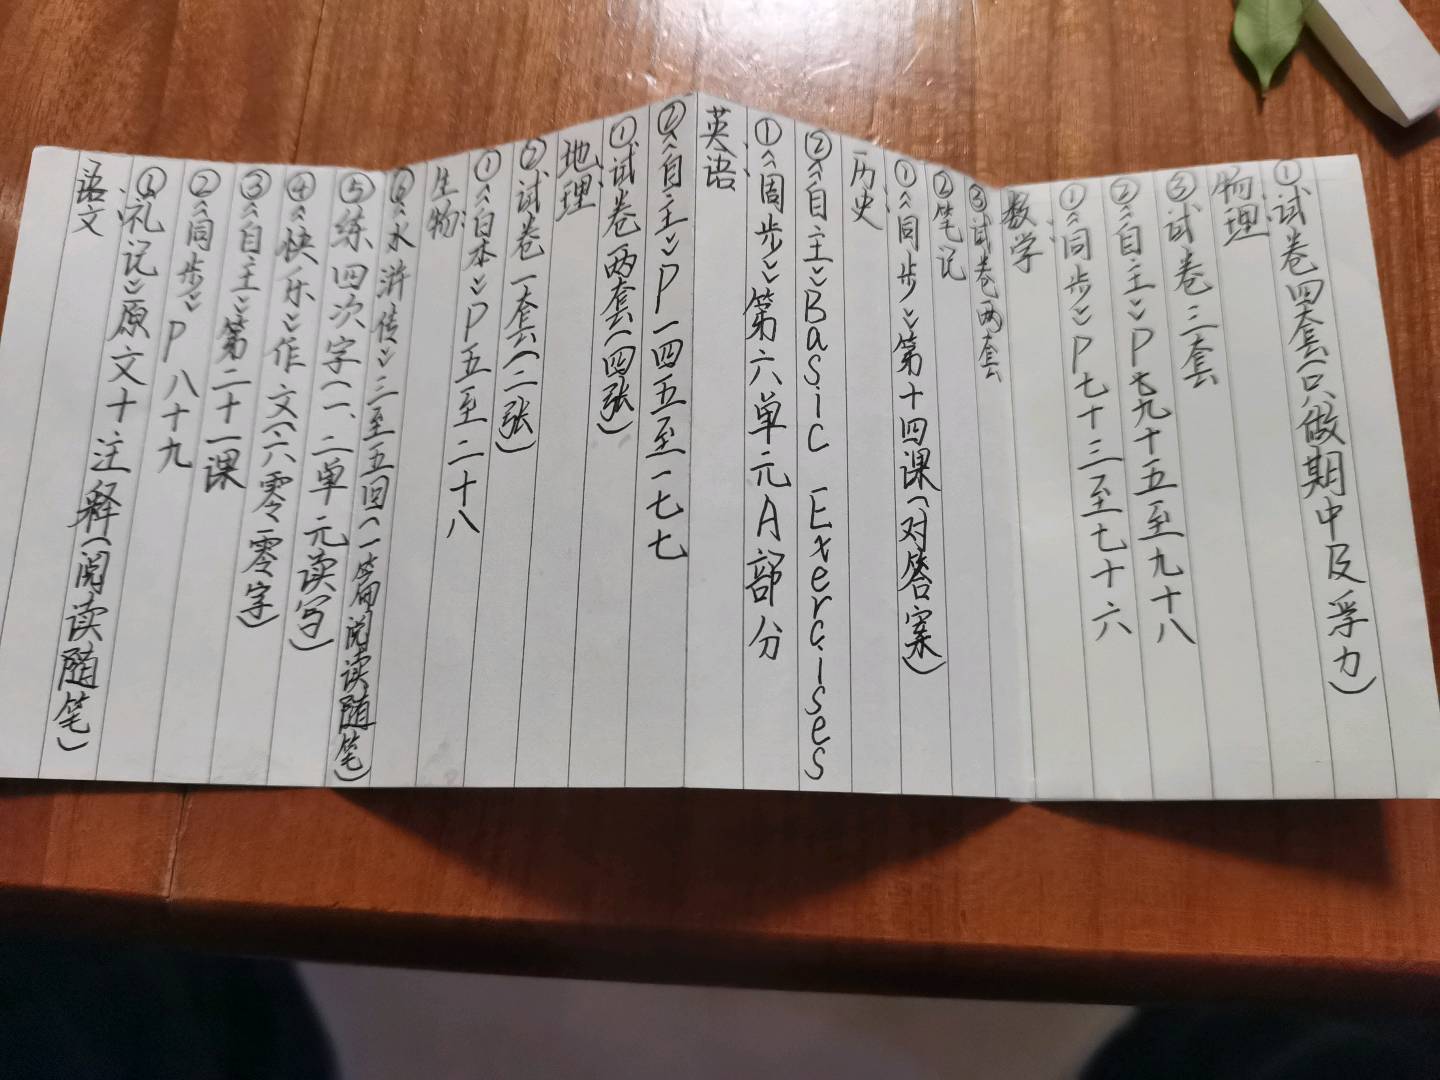 语文
①《礼记》原文+注释(阅读随笔)
②《同步》P八十九
③《自主》第二十一课
④《快乐》作文(六零零字)
⑤练四次字(一、二单元读写)
⑥《水浒传》三至五回(一篇阅读随笔)
生物
①《白本》P五至二十八
②试卷一套(二张)
地理
①试卷两套(四张)
②《自主》P一四五至一七七
英语
①《同步》第六单元A部分
②《自主》Basic Exercises
历史
①《同步》第十四课(对答案)
②笔记
③试卷两套
数学
①《同步》P七十三至七十六
②《自主》P九十五至九十八
③试卷三套
物理
①试卷四套(只做期中及浮力)